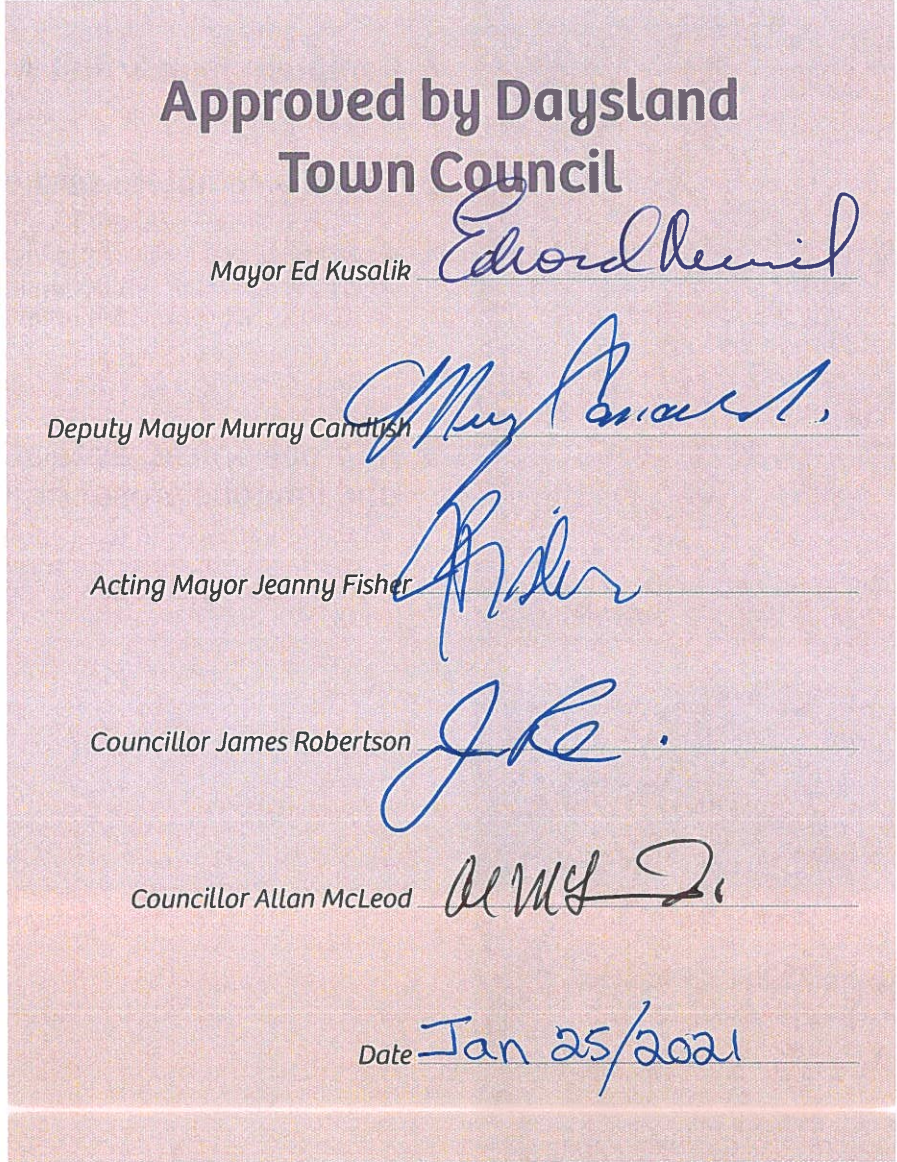 Approved by Daysland
Town Council
Mayor Ed Kusalik Edward
Deputy Mayor Murray Candlish
Acting Mayor Jeanny Fisher
Councillor James Robertson
Councillor Allan McLeod
Date Jan 25/2021